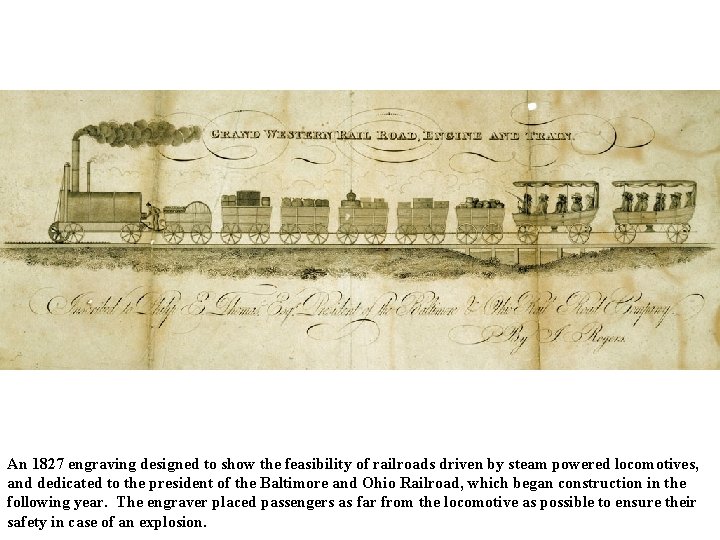 GRAND WESTERN RAIL ROAD, ENGINE AND TRAIN.
Inscribed to Philip E. Thomas, Esqr. President of the Baltimore & Ohio Rail Road Company.
By J Rogers.
An 1827 engraving designed to show the feasibility of railroads driven by steam powered locomotives,
and dedicated to the president of the Baltimore and Ohio Railroad, which began construction in the
following year. The engraver placed passengers as far from the locomotive as possible to ensure their
safety in case of an explosion.